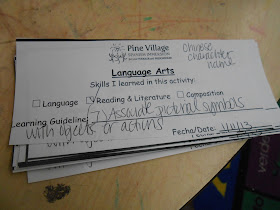 Pine Village
Chinese
character
name
Language Arts
Skills I learned in this activity:
Language Reading & Literature Composition
Learning Guideline: 7) Associate pictorial symbols
with objects or actions
Fecha/Date: